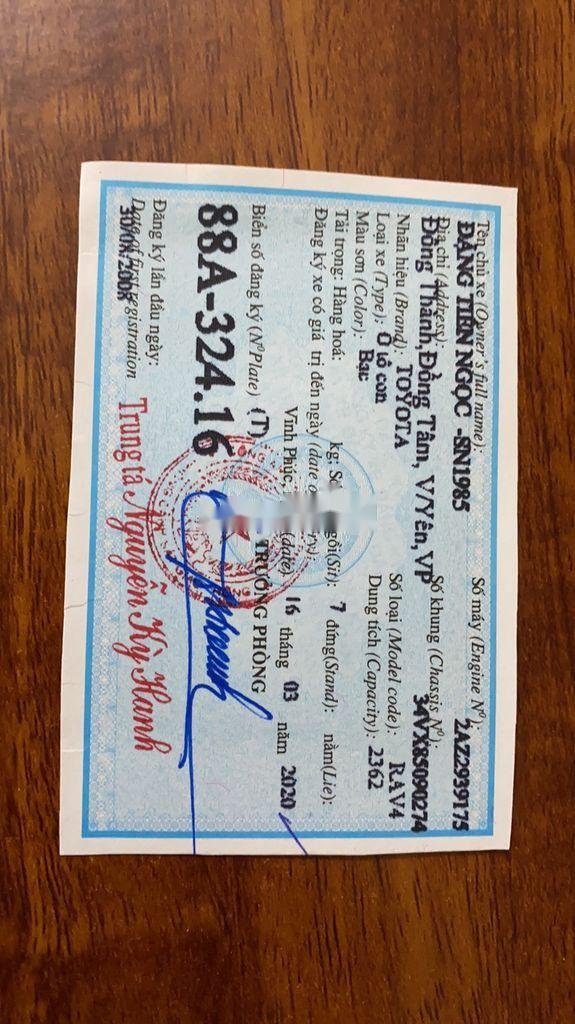 Tên chủ xe (Owner's full name):
ĐẶNG TIẾN NGỌC -SN1985
Địa chỉ (Address):
Đồng Thành, Đồng Tâm, V/Yên, VP
Số máy (Engine Nº):
2AZ2939175
Số khung (Chassis Nº):
34VX85090274
Nhãn hiệu (Brand): TOYOTA
Số loại (Model code): RAV4
Loại xe (Type): Ô tô con
Dung tích (Capacity): 2362
Màu sơn (Color): Bạc
Tải trọng: Hàng hoá: kg; Số ngồi(Sit): 7 đứng(Stand): nằm(Lie):
Đăng ký xe có giá trị đến ngày (date
Vĩnh Phúc, (date) 16 tháng 03 năm 2020
Biển số đăng ký (NºPlate) (T)
TRƯỞNG PHÒNG
88A-324.16
Đăng ký lần đầu ngày:
Date of first registration
Trung tá Nguyễn Kỳ Hanh